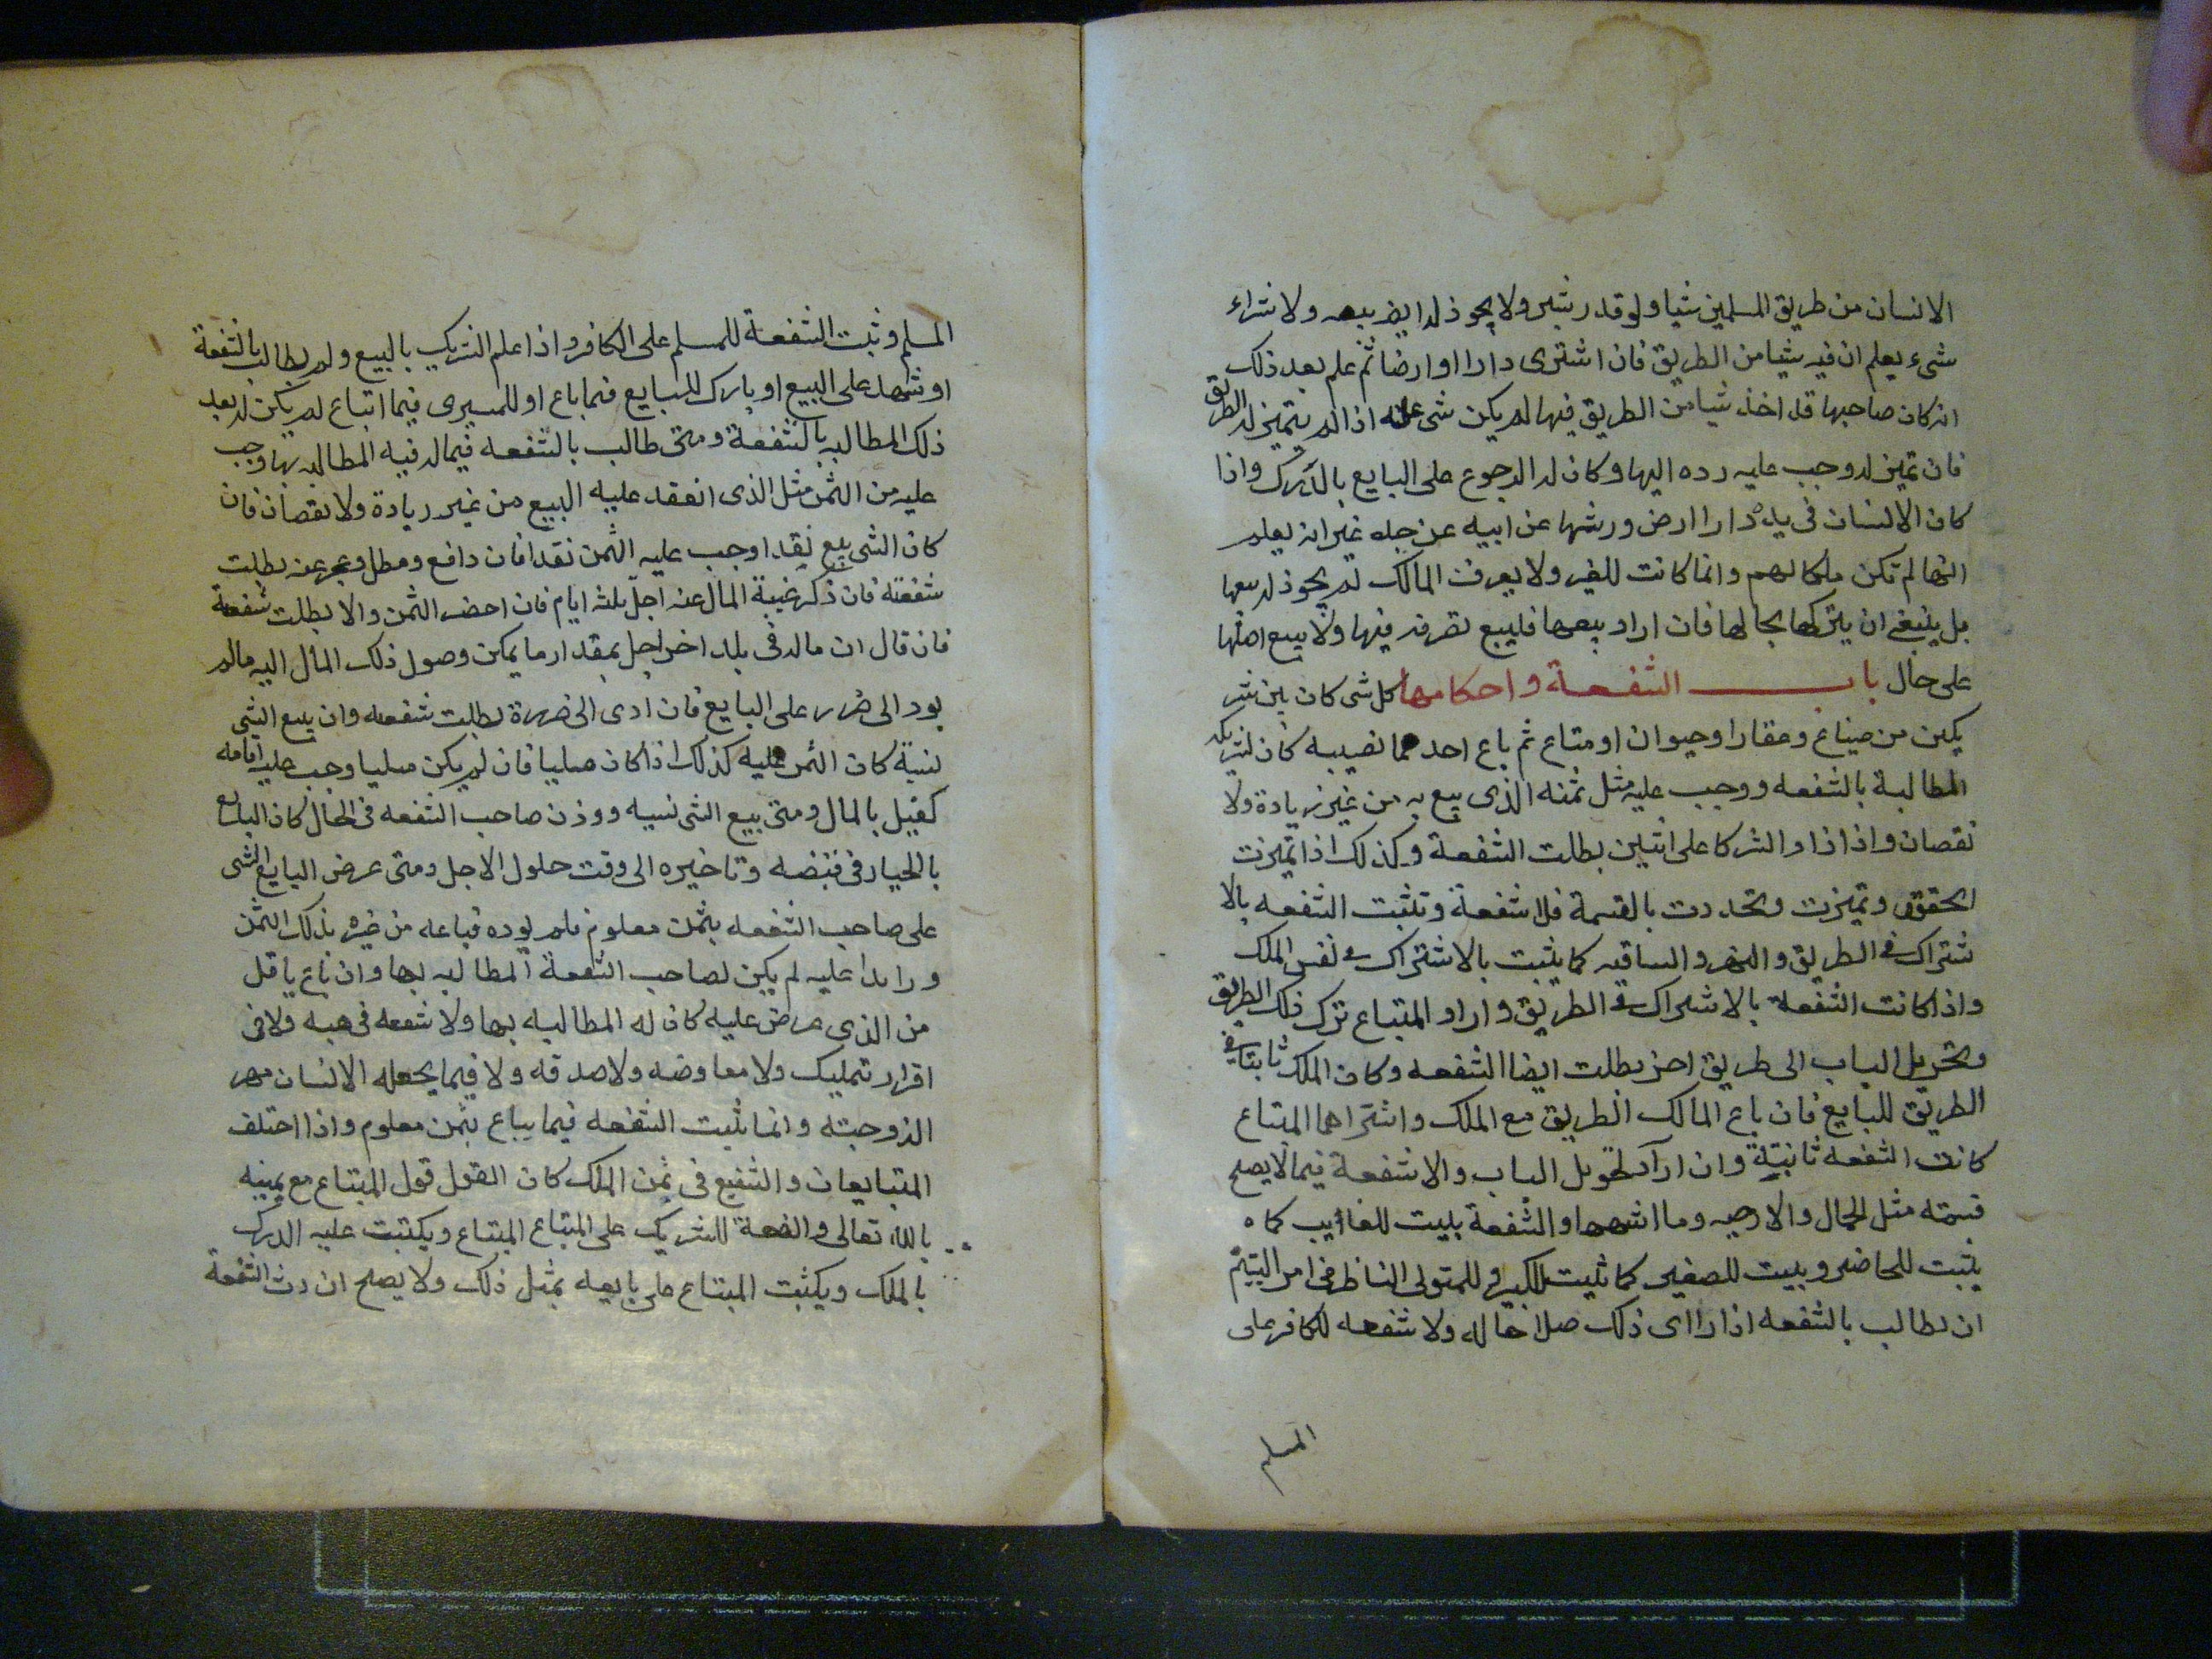 الانسان من طريق المسلمين شيا ولو قدر شبر ولا يجوز له ايضا بيعه ولا شراء
شىء يعلم ان فيه شيا من الطريق فان اشترى دارا او ارضا ثم علم بعد ذلك
انه كان صاحبها قد اخذ شيا من الطريق فيها لم يكن شى عليه اذا لم يتميز له الطريق
فان تميز له وجب عليه رده اليها وكان له الرجوع على البايع بالدرك واذا
كان الانسان فى يده دارا ارض ورثها عن ابيه عن جده غير انه يعلم
انها لم تكن ملكا لهم وانما كانت للغير ولا يعرف المالك لم يجوز له بيعها
بل ينبغى ان يتركها بحالها فان اراد بيعها فليبع تصرفه فيها ولا يبيع اصلها
على حال باب الشفعة واحكامها كل شى كان بين شر
يكين من ضياع وعقار او حيوان او متاع ثم باع احدهما نصيبه كان لشريكه
المطالبة بالشفعه ووجب عليه مثل ثمنه الذى بيع به من غير زيادة ولا
نقصان واذا زاد الشركا على اثنين بطلت الشفعة وكذلك اذا تميزت
الحقوق وتميزت وتحددت بالقسمة فلا شفعة وتثبت الشفعه بالا
شتراك فى الطريق والنهر والساقيه كما يثبت بالاشتراك فى نفس الملك
واذا كانت الشفعة بالاشتراك فى الطريق واراد المبتاع ترك ذلك الطريق
وتحويل الباب الى طريق اخر بطلت ايضا الشفعه وكان الملك ثابتا فى
الطريق للبايع فان باع المالك الطريق مع الملك واشتراهما المبتاع
كانت الشفعه ثابتة وان اراد تحويل الباب والا شفعة فيما لا يصلح
قسمته مثل الحمال والارحيه وما اشبهها والشفعة يثبت للغايب كما
يثبت للحاضر ويثبت للصغير كما ثبت للكبير وللمتولى الناظر فى امر اليتيم
ان يطالب بالشفعه اذا راى ذلك صلاحا له ولا شفعه للكافر على
المسلم
المسلم وثبت الشفعة للمسلم على الكافر واذا علم الشريك بالبيع ولم يطالب بالشفعة
او شهد على البيع او بارك للبايع فيما باع او للمشترى فيما ابتاع لم يكن له بعد
ذلك المطالبه بالشفعة ومتى طالب بالشفعه فيما له فيه المطالبه بها وجب
عليه من الثمن مثل الذى انعقد عليه البيع من غير زيادة ولا نقصان فان
كان الشى بيع نقدا وجب عليه الثمن نقدا فان دافع ومطل وعجز عنه بطلت
شفعته فان ذكر غيبة المال عنه اجل ثلثه ايام فان احضر الثمن والا بطلت شفعة
فان قال ان ماله فى بلد اخر اجل بمقدار ما يمكن وصول ذلك المال اليه مالم
يود الى ضرر على البايع فان ادى الى ضرورة بطلت شفعته وان بيع الشى
نسية كان الثمن عليه كذلك اذا كان مليا فان لم يكن مليا وجب عليه اقامه
كفيل بالمال ومتى بيع الشى نسيه ووزن صاحب الشفعه فى الحال كان البايع
بالخيار فى قبضه وتاخيره الى وقت حلول الاجل ومتى عرض البايع الشى
على صاحب الشفعه بثمن معلوم فلم يرده فباعه من غيره بذلك الثمن
وزايدا عليه لم يكن لصاحب الشفعة المطالبه بها وان باع باقل
من الذى عرض عليه كان له المطالبه بها ولا شفعه فى هبه ولا فى
اقرار تمليك ولا معاوضه ولا صدقه ولا فيما يجعله الانسان مهر
الزوجته وانما ثبت الشفعه فيما يباع بثمن معلوم واذا اختلف
المتبايعان والشفيع فى ثمن الملك كان القول قول المبتاع مع يمينه
بالله تعالى والشفعة للشريك على المبتاع المبتاع ويكتبت عليه الدرك
بالملك ويكتبت المبتاع على بايعه بمثل ذلك ولا يصلح ان رث الشفعة